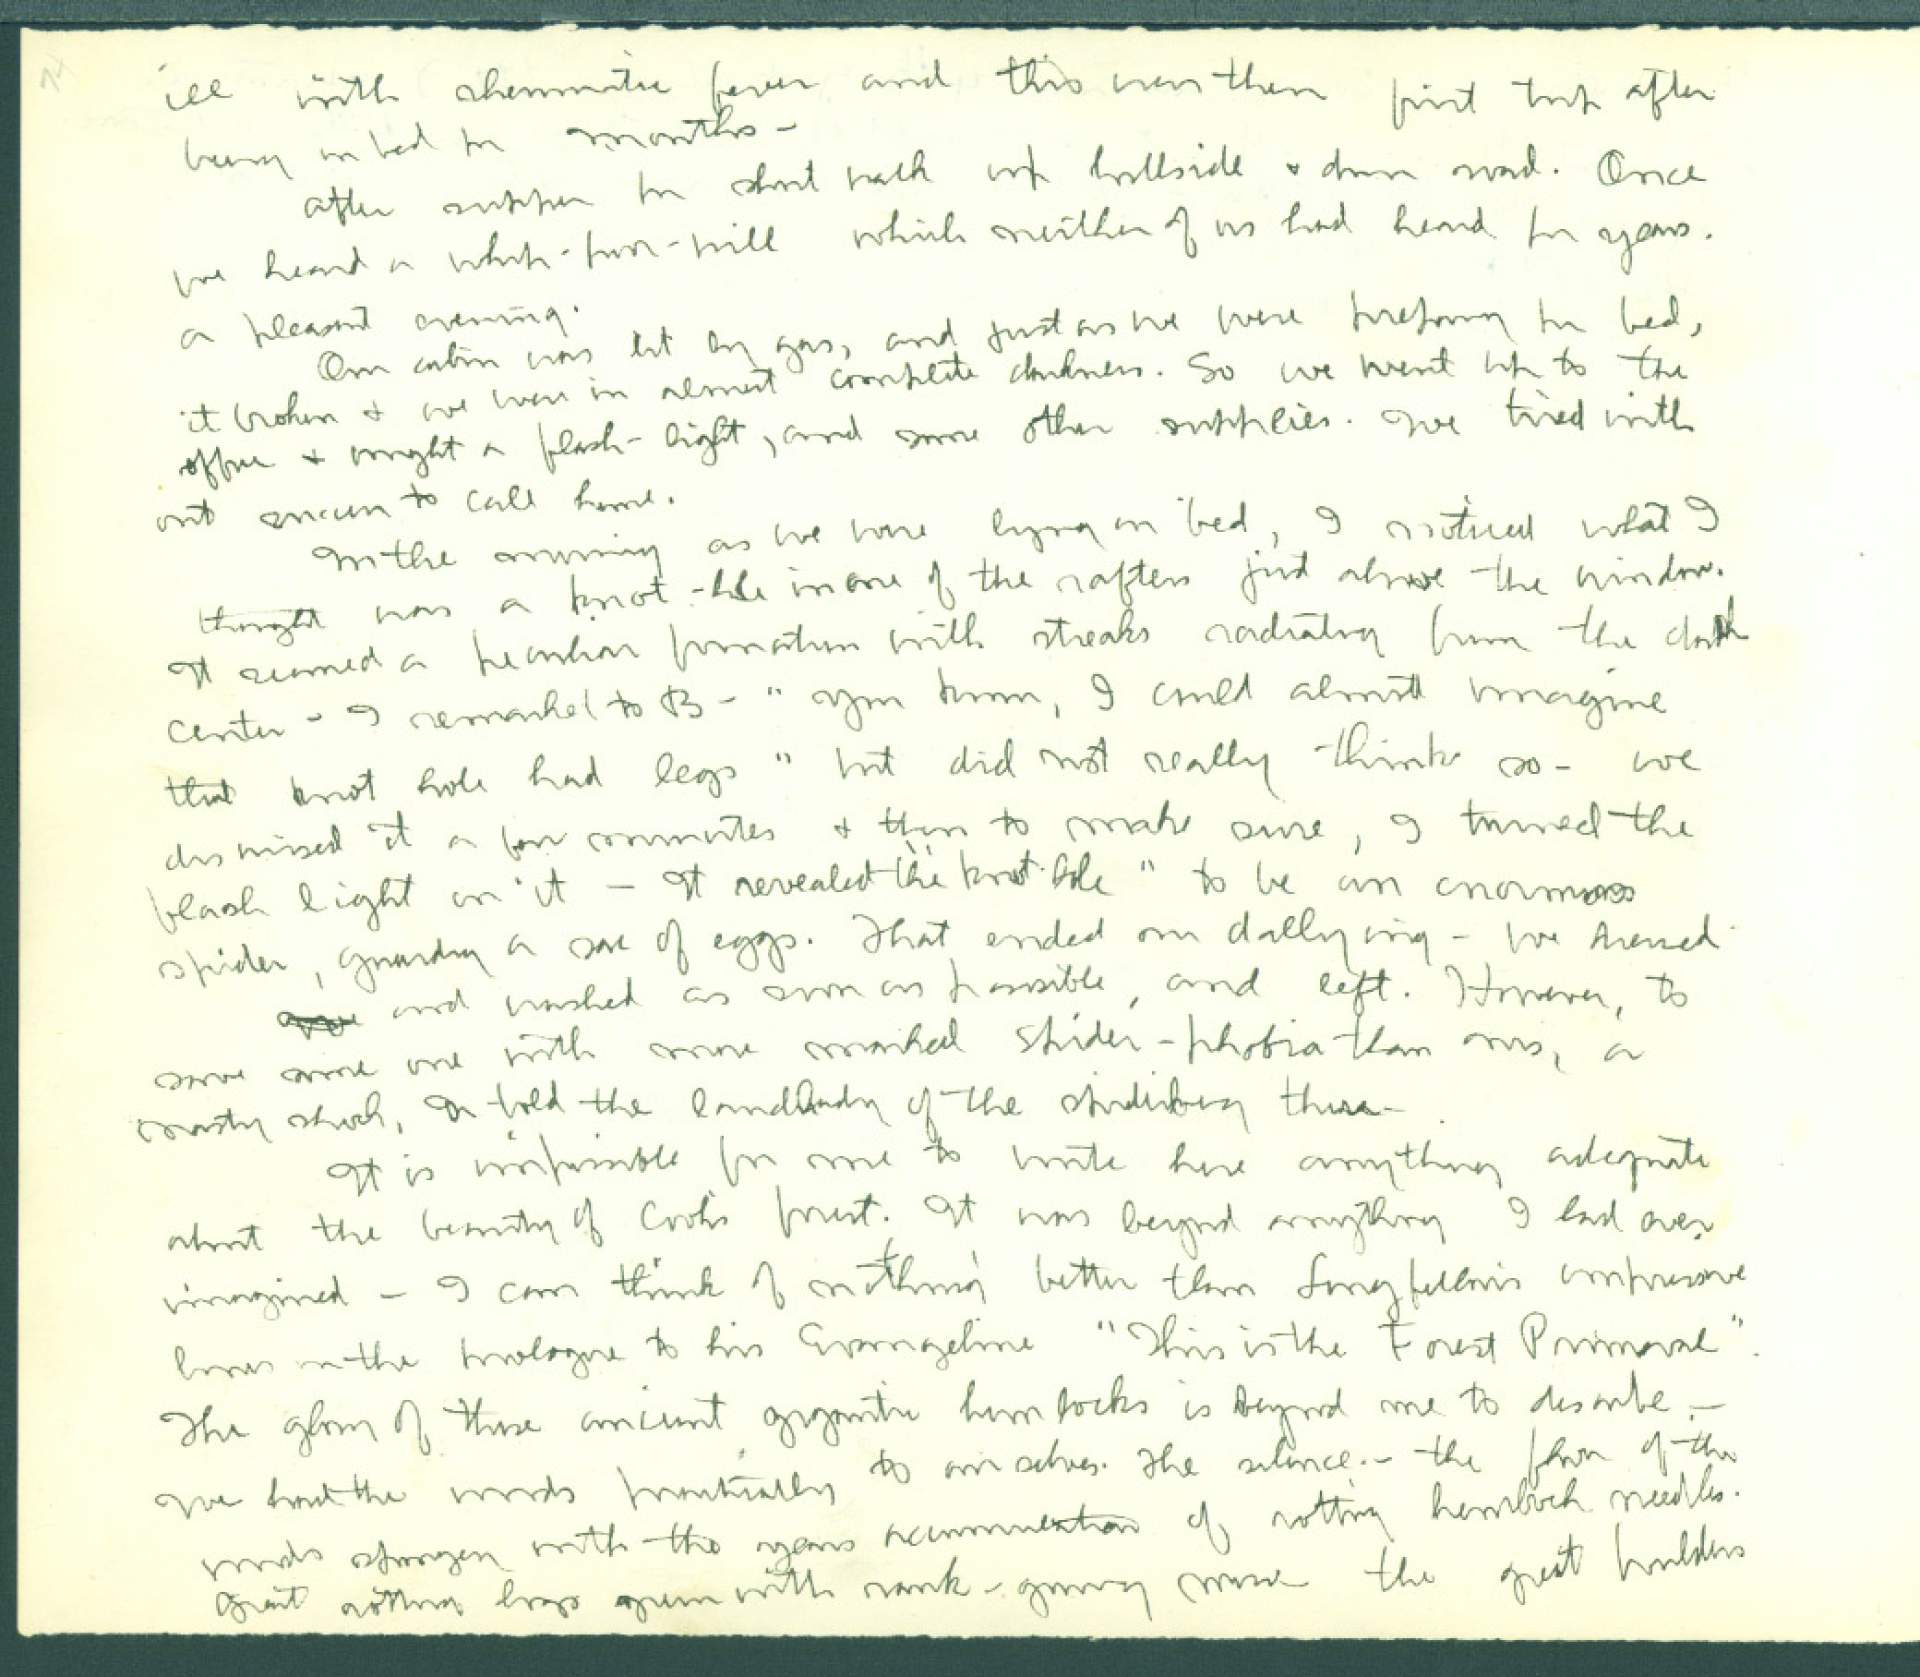 ill with rheumatic fever and this was their first trip after
being in bed for months -
After supper for short walk up hillside & down road. Once
we heard a whip-poor-will which neither of us had heard for years.
a pleasant evening.
Our cabin was lit by gas, and just as we were preparing for bed,
it broken & we were in almost complete darkness. So we went up to the
office & bought a flash-light, and some other supplies. We tried with
out success to call home.
In the morning as we were lying in bed, I noticed what I
thought was a knot-hole in one of the rafters just above the window.
It seemed a peculiar formation with streaks radiating from the dark
center - I remarked to B - "You know, I could almost imagine
that knot hole had legs" but did not really think so - we
dismissed it a few minutes & then to make sure, I turned the
flash light on it - It revealed the "knot-hole" to be an enormous
spider, guarding a sac of eggs. That ended our dallying - we dressed
and washed as soon as possible, and left. However, to
save some one with more marked spider-phobia than ours, a
nasty shock, I told the landlady of the spider being there -
It is impossible for me to write here anything adequate
about the beauty of Cook's forest. It was beyond anything I had ever
imagined - I can think of nothing better than Longfellow's impressive
lines in the prologue to his Evangeline "This is the Forest Primeval".
The glory of those ancient gigantic hemlocks is beyond me to describe -
We had the woods practically to ourselves. The silence - the floor of the
woods spongey with the years accumulation of rotting hemlock needles.
Great rotting logs green with rank-growing moss the great boulders